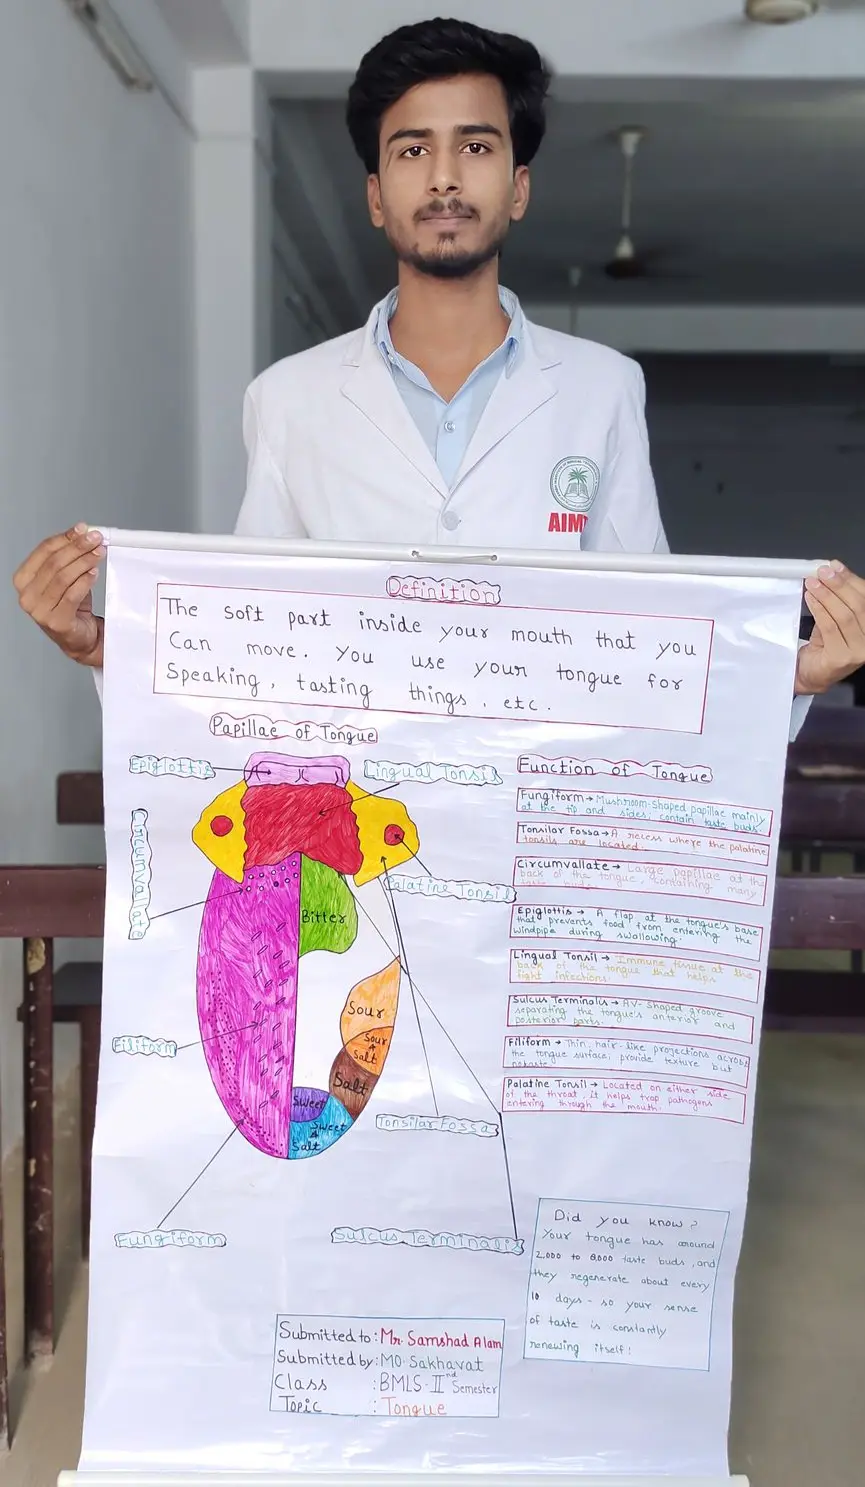 AIM
Definition
The soft part inside your mouth that you
Can move. You use your tongue for
Speaking, tasting things, etc.
Papillae of Tongue
Epiglottis
Lingual Tonsil
Circumvallate
Palatine Tonsil
Bitter
Sour
Sour
&
Salt
Salt
Sweet
Sweet
&
Salt
Filiform
Tonsilar Fossa
Fungiform
Sulcus Terminalis
Function of Tongue
Fungiform → Mushroom-Shaped papillae mainly
at the tip and sides; contain taste buds.
Tonsilar Fossa → A recess where the palatine
tonsils are located.
Circumvallate → Large papillae at the
back of the tongue, containing many
taste buds.
Epiglottis → A flap at the tongue's base
that prevents food from entering the
windpipe during swallowing.
Lingual Tonsil → Immune tissue at the
back of the tongue that helps
fight infections.
Sulcus Terminalis → AV-Shaped groove
separating the tongue's anterior and
posterior parts.
Filiform → Thin, hair-like projections across
the tongue surface; provide texture but
Palatine Tonsil → Located on either side
of the throat, It helps trap pathogens
entering through the mouth.
Did you know?
Your tongue has around
2,000 to 8,000 taste buds, and
they regenerate about every
10 days - so your sense
of taste is constantly
renewing itself!
Submitted to : Mr. Samshad Alam
Submitted by : MO. Sakhavat
Class : BMLS-IInd Semester
Topic : Tongue